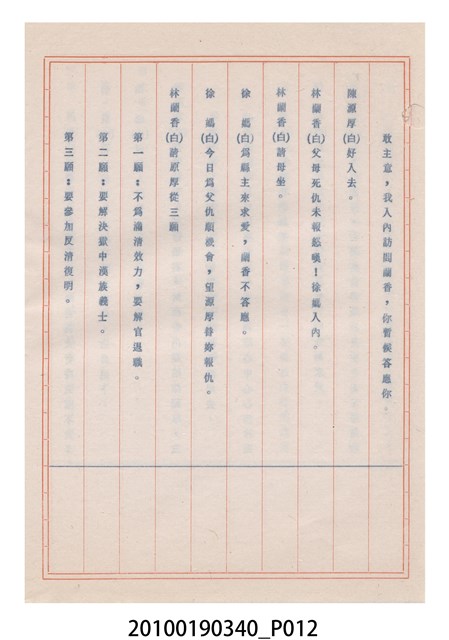 敢主意，我入內訪問蘭香，你暫候答應你。
陳源厚(白)好入去。
林蘭香(白)父母死仇未報 嘆！徐 入內。
林蘭香(白)請母坐。
徐 (白)為 主來求愛，蘭香不答應。
徐 (白)今日為父仇願機會，望源厚替妳報仇。
林蘭香(白)請原厚從三願
第一願：不為滿清效力，要解官退職。
第二願：要解決獄中漢族義士。
第三願：要參加反清復明。
20100190340_P012